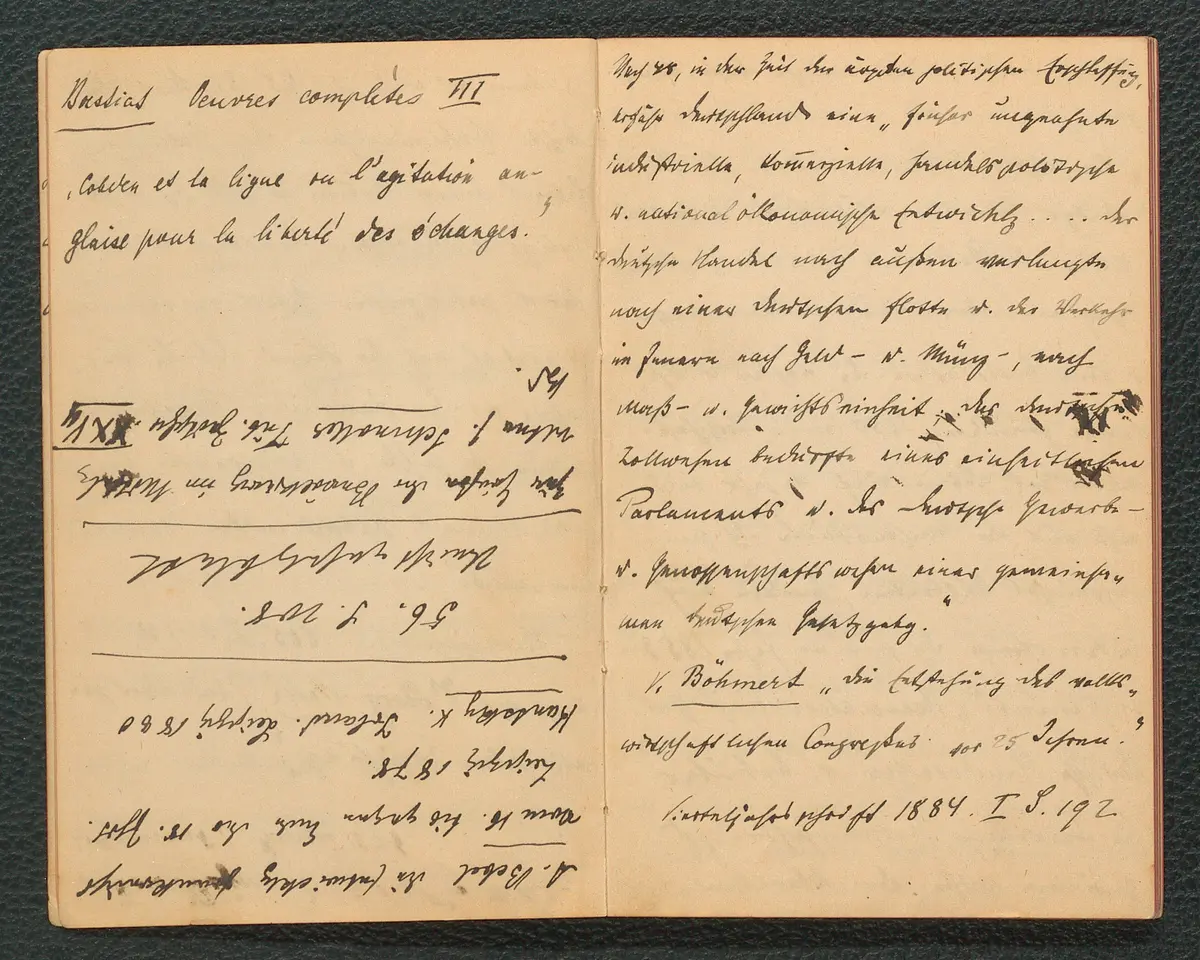 Bastiat Oeuvres complètes III
„Cobden et la ligue ou l'agitation an-
glaise pour la liberté des échanges.“
A. Bebel die Entwicklg Frankreichs
vom 16. bis gegen Ende des 18. Jhrs.
Leipzig 1878.
K. Irland. Leipzig 1880
56. S. 208.
der Bevölkerung im
f. XXIV
Nach 48, in der Zeit der politischen Erschlaffung,
erfuhr Deutschland eine „früher ungeahnte
industrielle, kommerzielle, handelspolitische
u. nationalökonomische Entwicklg .... der
deutsche Handel nach außen verlangte
nach einer deutschen Flotte u. der Verkehr
im Innern nach Geld- u. Münz-, nach
Maß- u. Gewichtseinheit, das deutsche
Zollwesen bedurfte eines einheitlichen
Parlaments u. das deutsche Gewerbe-
u. Genossenschaftswesen einer gemeinsa-
men deutschen Gesetzgebg.“
V. Böhmert „die Entstehung des volks-
wirtschaftlichen Congresses vor 25 Jahren.“
Vierteljahrsschrift 1884. I S. 192